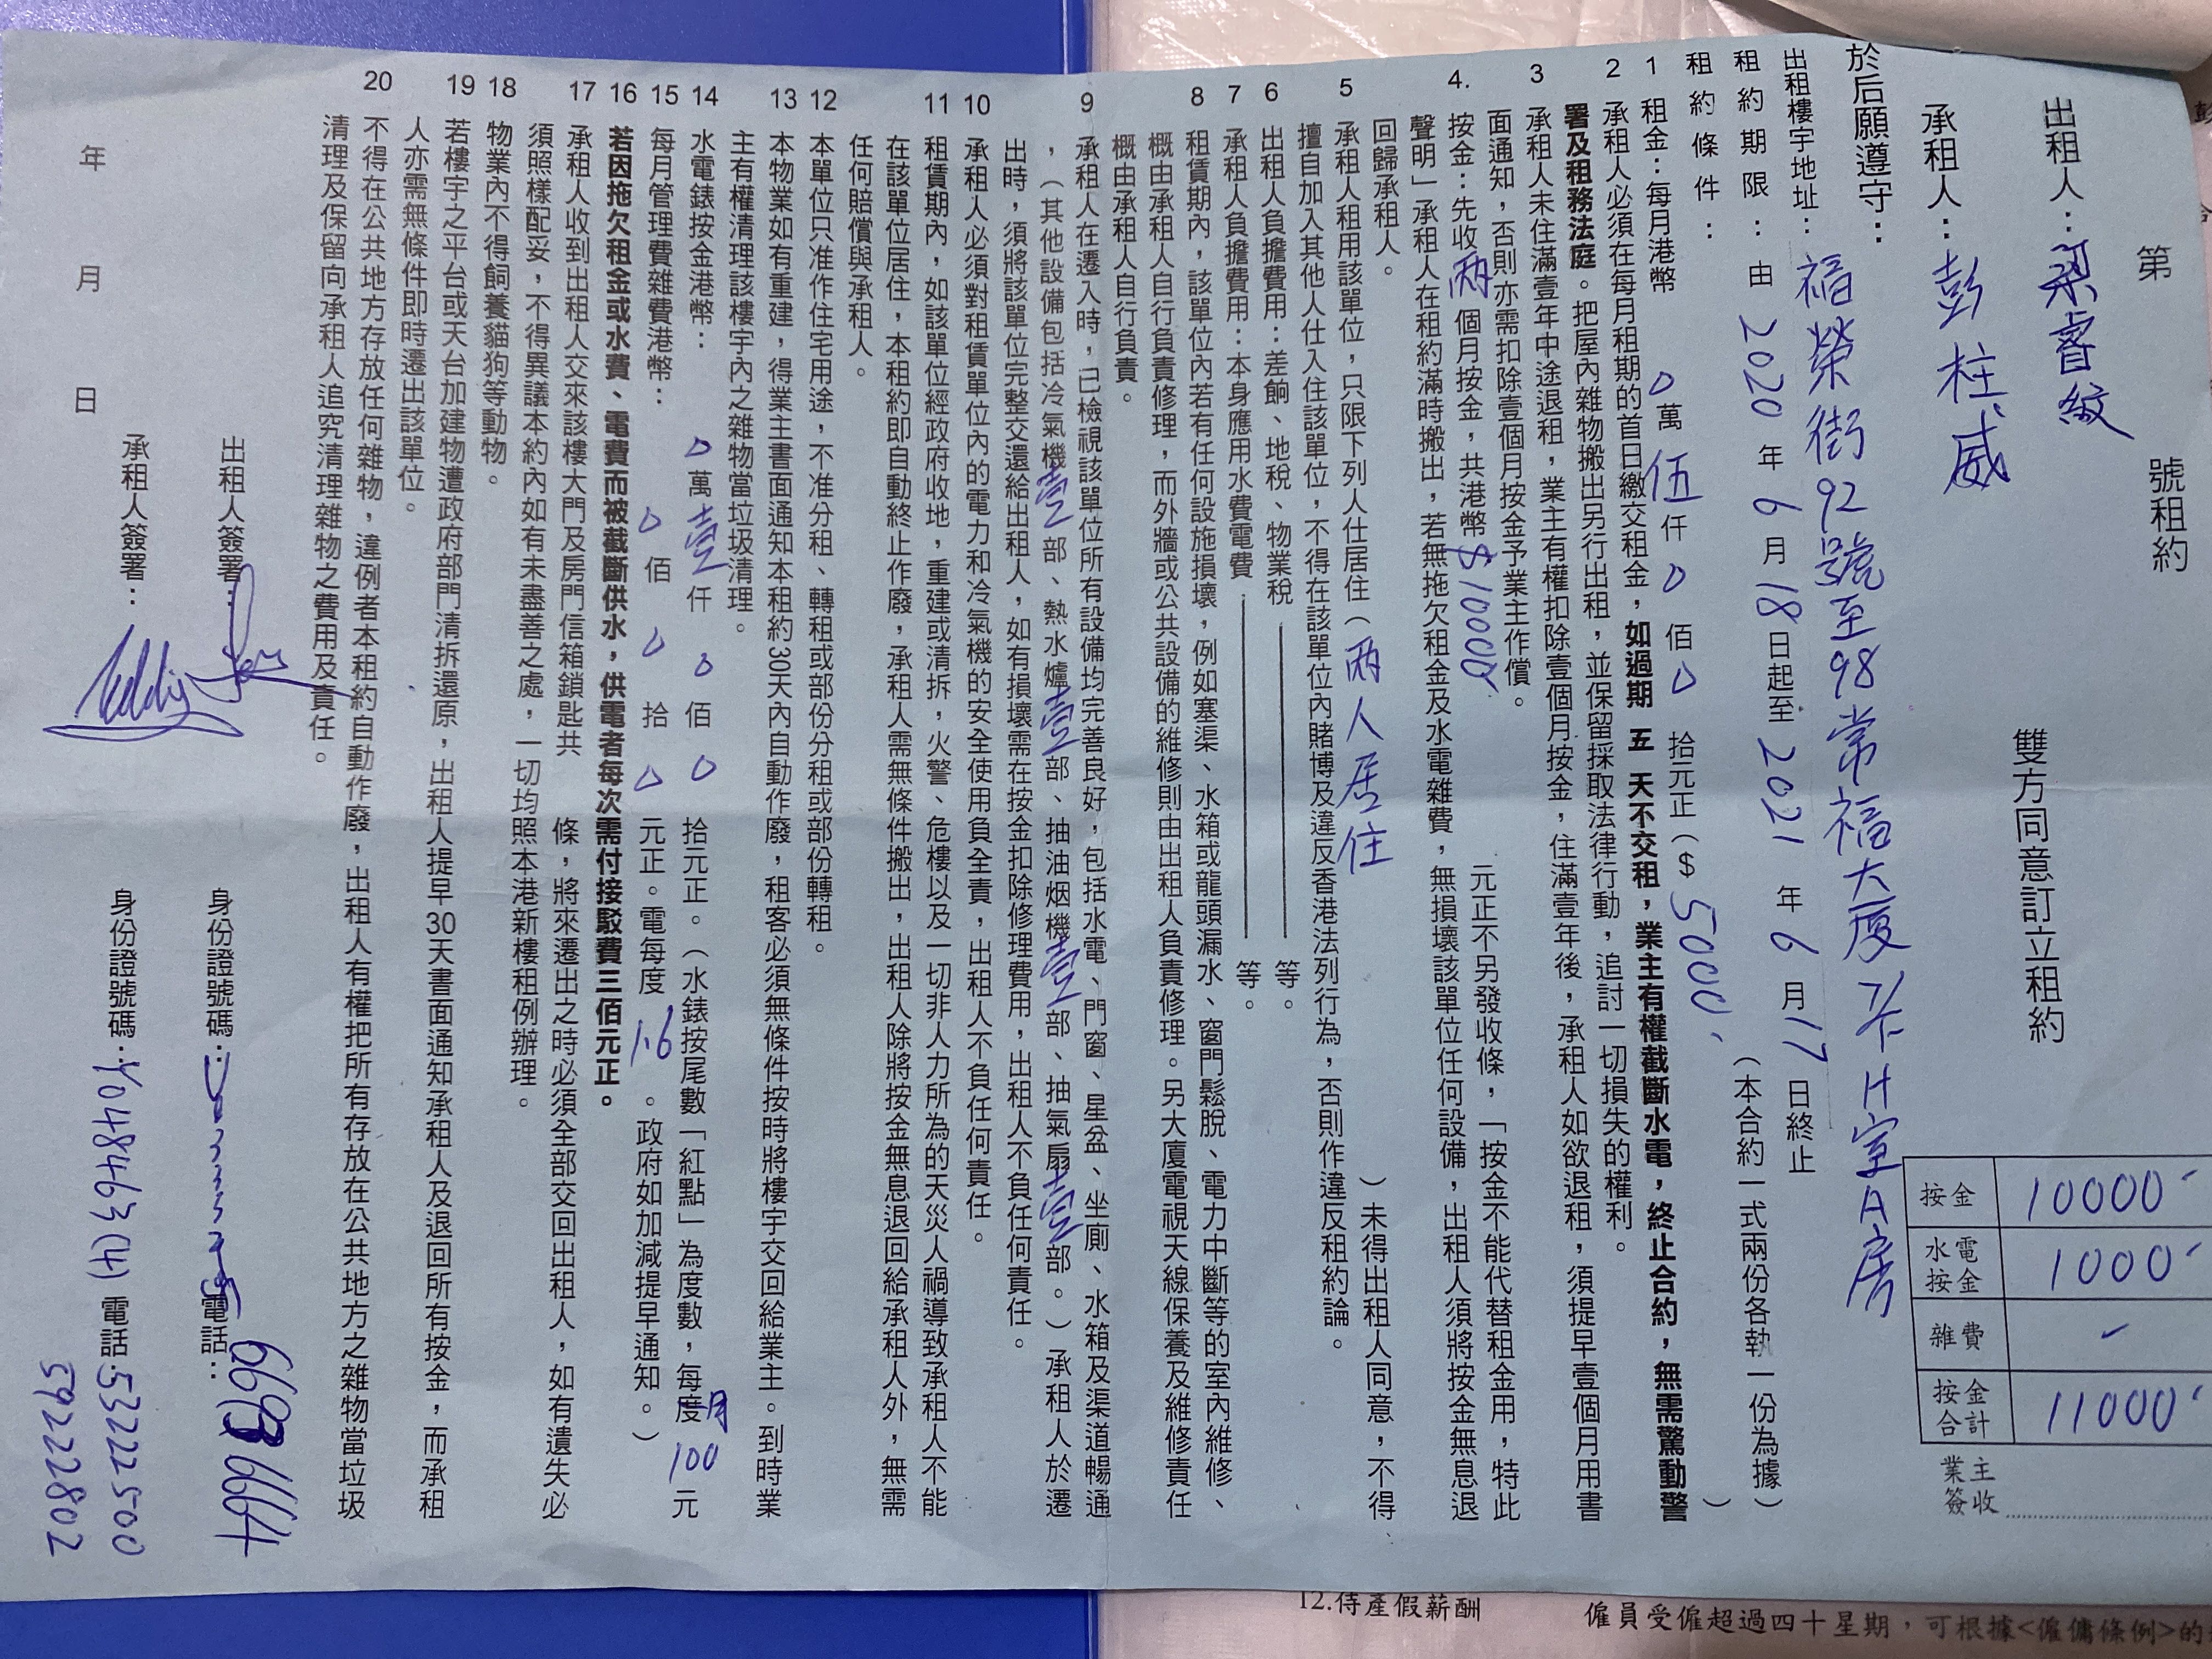 第 號租約
出租人： 睿紋
承租人：彭柱威 雙方同意訂立租約
於后願遵守：
出租樓宇地址：福榮街92號至98常福大厦7/F H室A房
租約期限：由2020年6月18日起至2021年6月17日終止
租約條件： （本合約一式兩份各執一份為據）
1 租金：每月港幣 0萬伍仟0佰0拾元正（$5000. ）
2 承租人必須在每月租期的首日繳交租金，如過期 五 天不交租，業主有權截斷水電，終止合約，無需驚動警
署及租務法庭。把屋內雜物搬出另行出租，並保留採取法律行動，追討一切損失的權利。
3 承租人未住滿壹年中途退租，業主有權扣除壹個月按金，住滿壹年後，承租人如欲退租，須提早壹個月用書
面通知，否則亦需扣除壹個月按金予業主作償。
4. 按金：先收兩個月按金，共港幣$10000 元正不另發收條，「按金不能代替租金用，特此
聲明」承租人在租約滿時搬出，若無拖欠租金及水電雜費，無損壞該單位任何設備，出租人須將按金無息退
回歸承租人。
5 承租人租用該單位，只限下列人仕居住（兩人居住）未得出租人同意，不得
擅自加入其他人仕入住該單位，不得在該單位內賭博及違反香港法列行為，否則作違反租約論。
6 出租人負擔費用：差餉、地稅、物業稅 等。
7 承租人負擔費用：本身應用水費電費 等。
8 租賃期內，該單位內若有任何設施損壞，例如塞渠、水箱或龍頭漏水、窗門鬆脫、電力中斷等的室內維修、
概由承租人自行負責修理，而外牆或公共設備的維修則由出租人負責修理。另大廈電視天線保養及維修責任
概由承租人自行負責。
9 承租人在遷入時，已檢視該單位所有設備均完善良好，包括水電、門窗、星盆、坐廁、水箱及渠道暢通
，（其他設備包括冷氣機壹部、熱水爐壹部、抽油烟機壹部、抽氣扇壹部。）承租人於遷
出時，須將該單位完整交還給出租人，如有損壞需在按金扣除修理費用，出租人不負任何責任。
10 承租人必須對租賃單位內的電力和冷氣機的安全使用負全責，出租人不負任何責任。
11 租賃期內，如該單位經政府收地，重建或清拆，火警、危樓以及一切非人力所為的天災人禍導致承租人不能
在該單位居住，本租約即自動終止作廢，承租人需無條件搬出，出租人除將按金無息退回給承租人外，無需
任何賠償與承租人。
12 本單位只准作住宅用途，不准分租、轉租或部份分租或部份轉租。
13 本物業如有重建，得業主書面通知本租約30天內自動作廢，租客必須無條件按時將樓宇交回給業主。到時業
主有權清理該樓宇內之雜物當垃圾清理。
14 水電錶按金港幣：0萬壹仟0佰0拾元正。（水錶按尾數「紅點」為度數，每度月100元
15 每月管理費雜費港幣：0佰0拾0元正。電每度1.6。政府如加減提早通知。）
16 若因拖欠租金或水費、電費而被截斷供水，供電者每次需付接駁費三佰元正。
17 承租人收到出租人交來該樓大門及房門信箱鎖匙共 條，將來遷出之時必須全部交回出租人，如有遺失必
須照樣配妥，不得異議本約內如有未盡善之處，一切均照本港新樓租例辦理。
18 物業內不得飼養貓狗等動物。
19 若樓宇之平台或天台加建物遭政府部門清拆還原，出租人提早30天書面通知承租人及退回所有按金，而承租
人亦需無條件即時遷出該單位。
20 不得在公共地方存放任何雜物，違例者本租約自動作廢，出租人有權把所有存放在公共地方之雜物當垃圾
清理及保留向承租人追究清理雜物之費用及責任。
出租人簽署： 身份證號碼： 電話：
承租人簽署： 身份證號碼：Y048463(4) 電話：53222500
59222802
年 月 日
按金 10000
水電按金 1000
雜費
按金合計 11000
業主簽收
12.侍產假薪酬
僱員受僱超過四十星期，可根據<僱傭條例>的